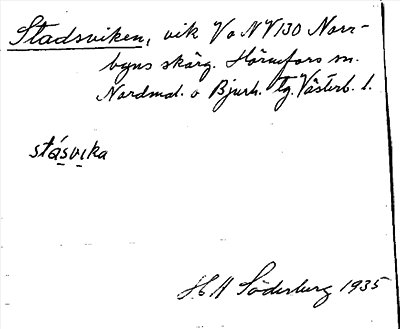 Stadsviken, vik V o NV 130 Norr-
byns skärg. Hörnefors sn.
Nordmal. o Bjurh. tg. Västerb. l.
stásvika
H Söderberg 1935